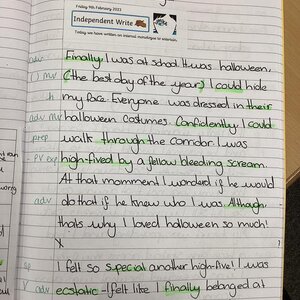 Friday 9th February 2023
Independent Write
Today we have written an internal monologue to entertain.
adv Finally, I was at school. It was halloween,
() mv (the best day of the year) I could hide
h my face. Everyone was dressed in their
adv mv halloween costumes. Confidently I could
prep walk through the corridor. I was
PV exp high-fived by a fellow bleeding scream.
At that momment I wonderd if he would
adv do that if he knew who I was. Although,
thats why I loved halloween so much!
sp i felt so special another high-five! I was
V adv ecstatic - I felt like I finally belonged at